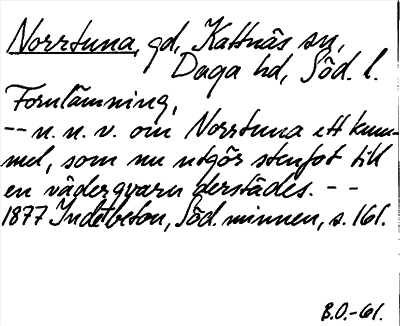 Norrtuna, gd, Kattnäs sn,
Daga hd, Söd. l.
Fornlämning,
-- n. n. v. om Norrtuna ett kum-
mel, som nu utgör stenfot till
en vädergvarn derstädes. - -
1877 Indebetou, Söd. minnen, s. 161.
B.O.-61.